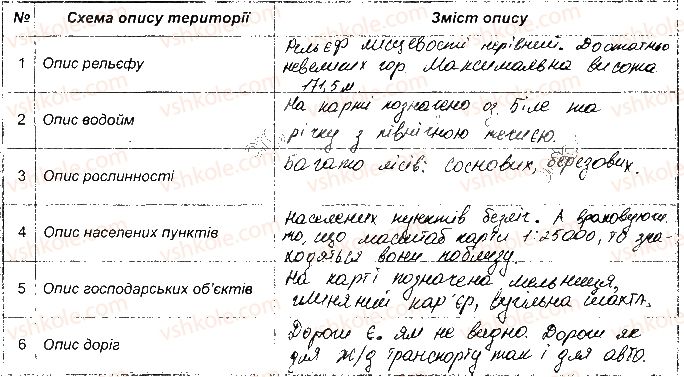 № Схема опису території Зміст опису
1 Опис рельєфу
Рельєф місцевості нерівний. Достатньо
невеликих гор. Максимальна висота
171,5 м
2 Опис водойм
На карті позначено оз. Біле та
річку з північною течією.
3 Опис рослинності
Багато лісів: соснових, березових.
4 Опис населених пунктів
Населених пунктів безліч. А враховуючи
то, що масштаб карти 1:25000, то зна-
ходяться вони поблизу.
5 Опис господарських об'єктів
На карті позначена мельниця,
глиняний кар'єр, вугільна шахта.
6 Опис доріг
Дороги є. Ям не видно. Дороги як
для ж/д транспорту так і для авто.